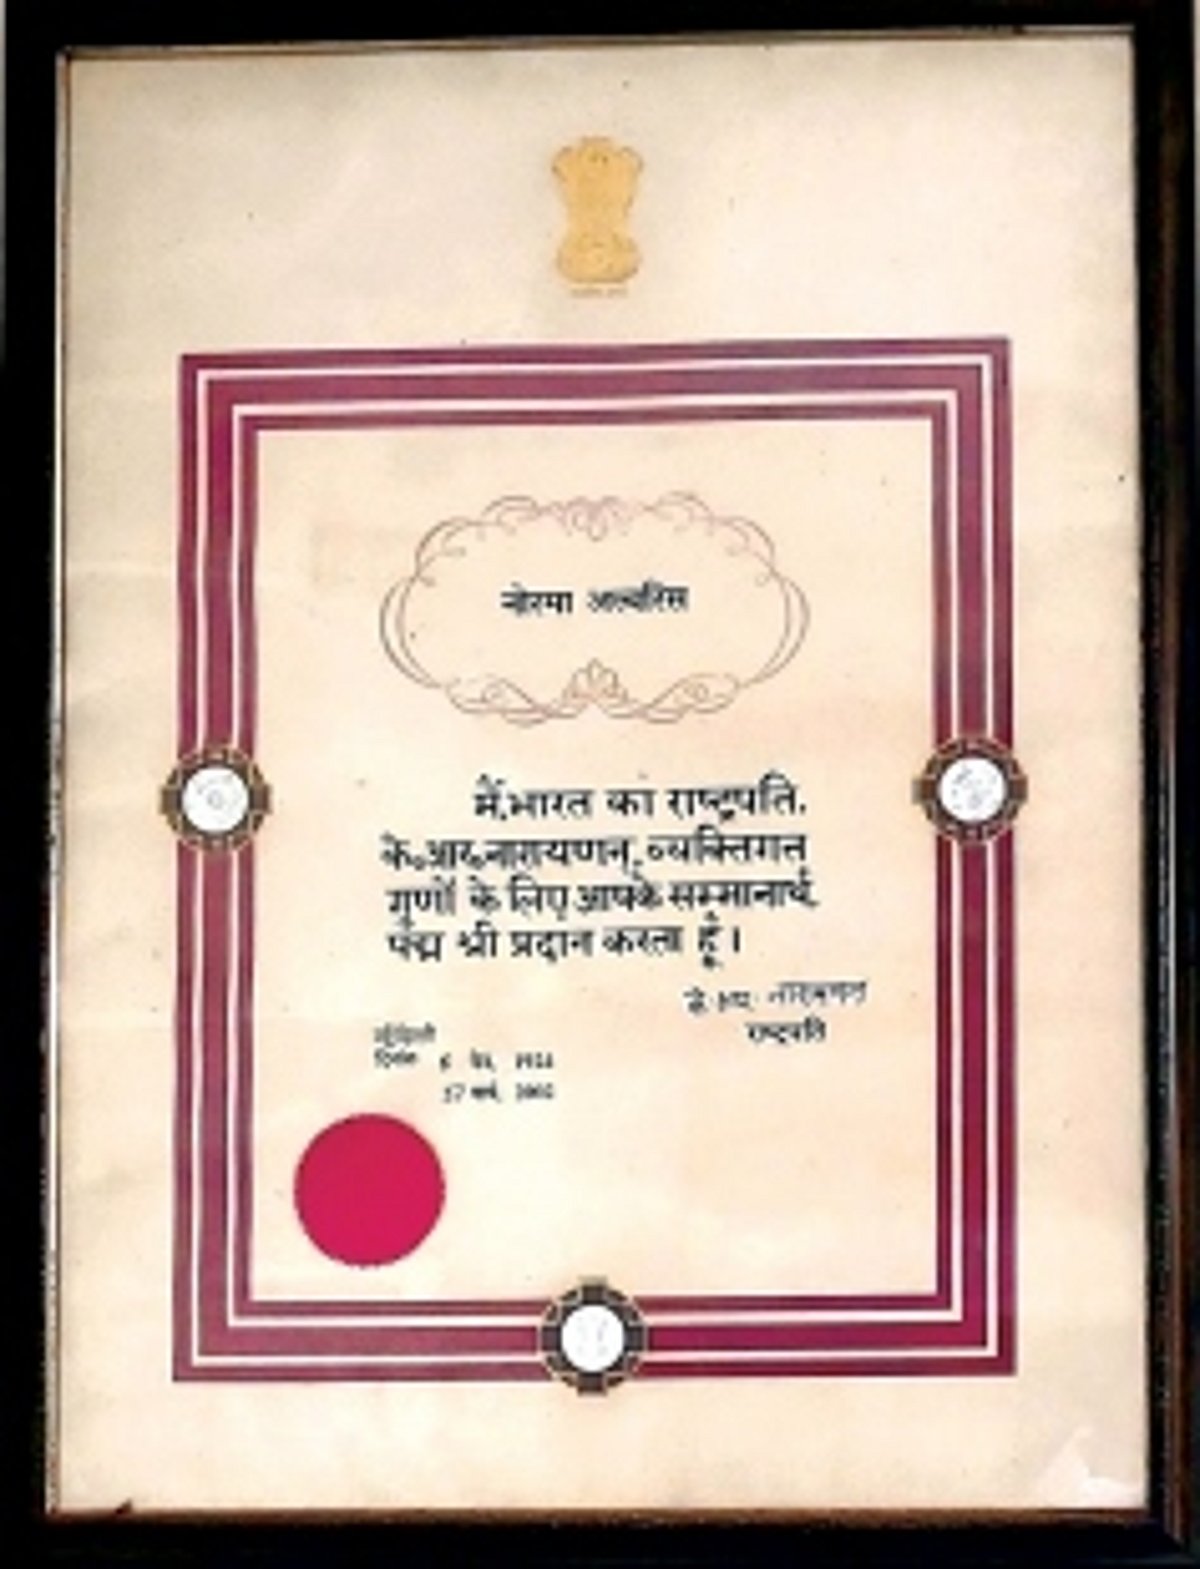 नोरमा अल्वारिस
मैं, भारत का राष्ट्रपति,
के॰ आर॰ नारायणन्, व्यक्तिगत
गुणों के लिए आपके सम्मानार्थ,
पद्म श्री प्रदान करता हूँ।
के. आर. नारायणन
राष्ट्रपति
नई दिल्ली
दिनांक